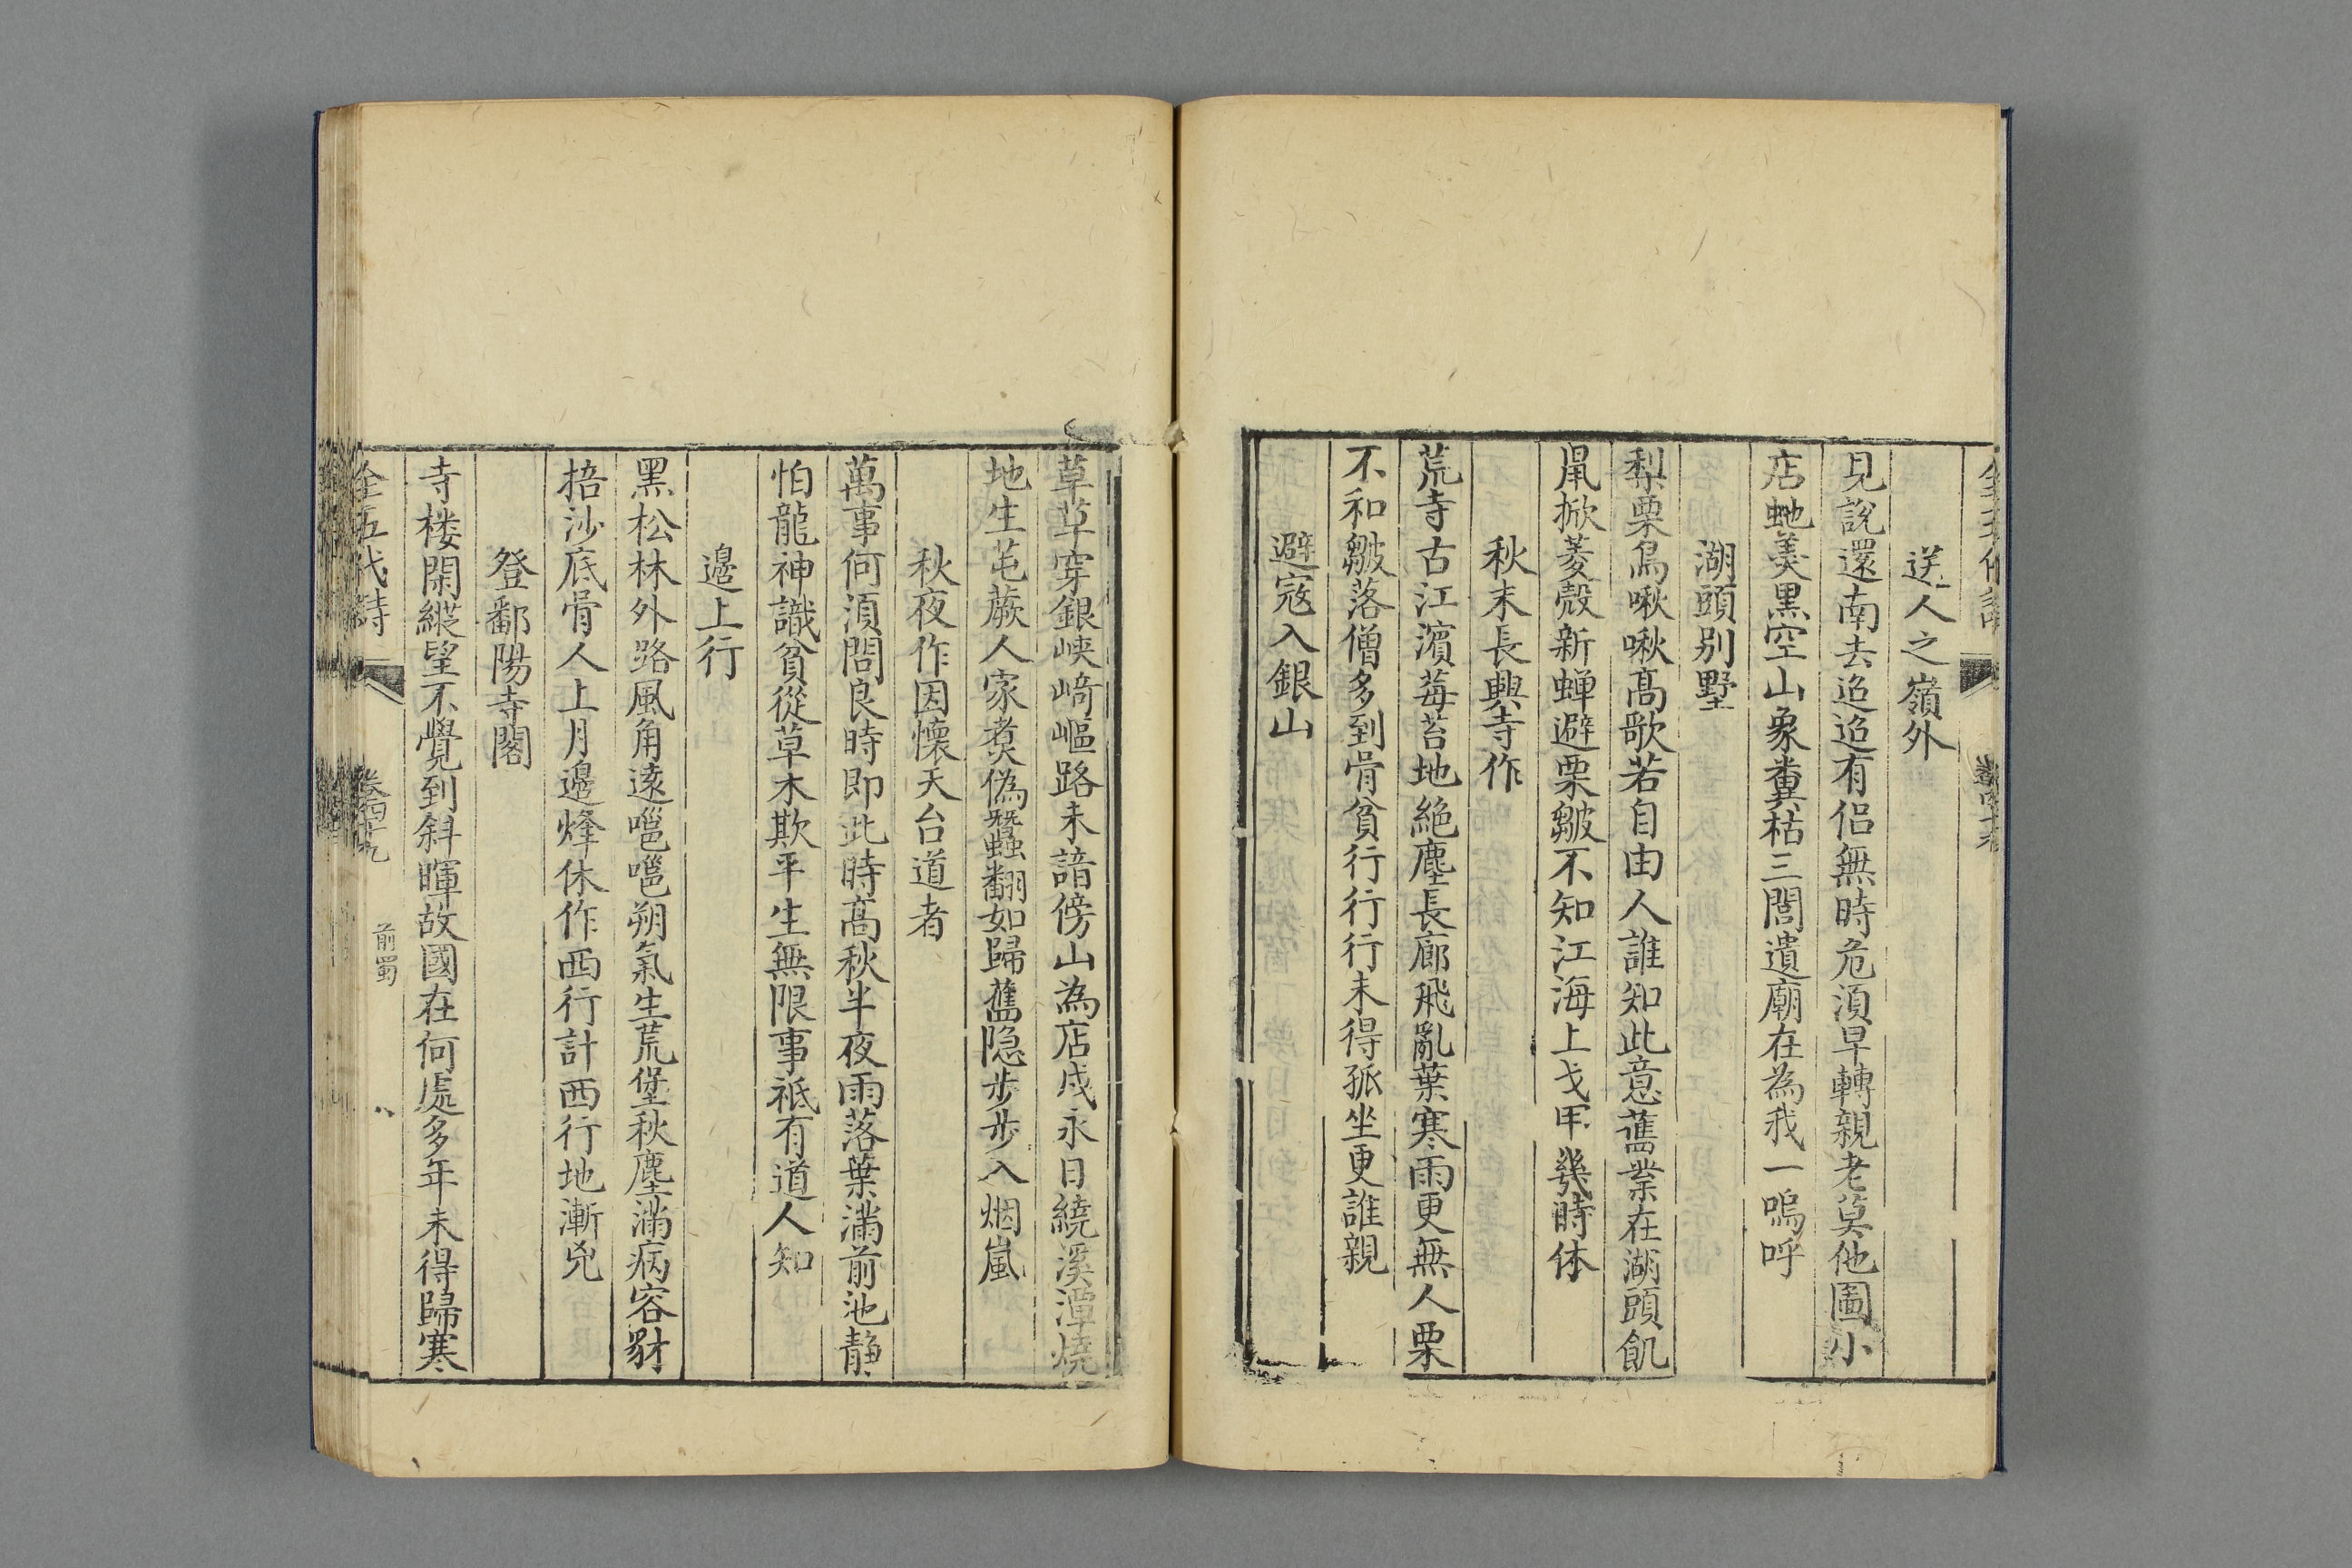 送人之嶺外
見說還南去迢迢有侣無時危湏早轉親老莫他圖小
店虵羮黑空山象糞枯三閭遺廟在為我一嗚呼
湖頭别墅
梨栗鳥啾啾髙歌若自由人誰知此意舊業在湖頭飢
鼠掀菱殼新蟬避栗皺不知江海上戈甲幾時休
秋末長興寺作
荒寺古江濱莓苔地絶塵長廊飛亂葉寒雨更無人栗
不和皺落僧多到骨貧行行行未得孤坐更誰親
避寇入銀山
草草穿銀峽崎嶇路未諳傍山為店戍永日繞溪潭燒
地生芚蕨人家煑偽蠶翻如歸舊隐步步入烟嵐
秋夜作因懷天台道者
萬事何湏問良時即此時髙秋半夜雨落葉滿前池静
怕龍神識貧從草木欺平生無限事祗有道人知
邊上行
黑松林外路風角遠嗈嗈朔氣生荒堡秋塵滿病容豺
掊沙底骨人上月邊烽休作西行計西行地漸兇
登鄱陽寺閣
寺楼閑縱望不覺到斜暉故國在何處多年未得歸寒
全五代詩 卷四十九 前蜀 八